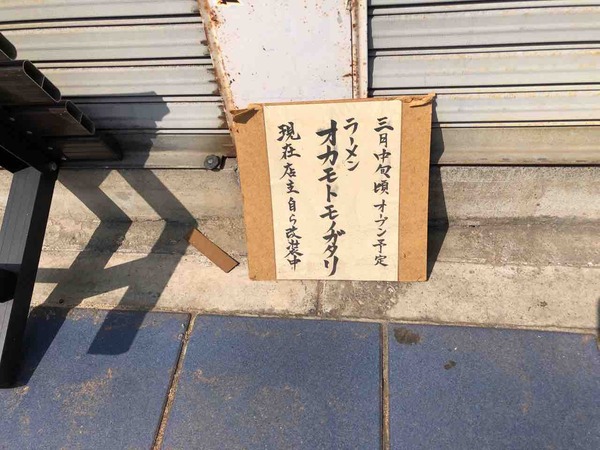 三月中旬頃オープン予定
ラーメン
オカモトモノガタリ
現在店主自ら改装中